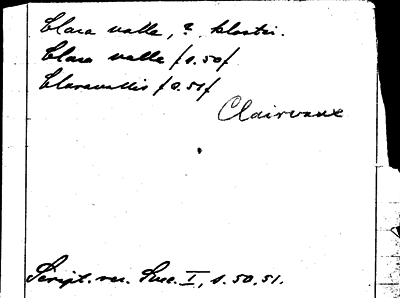 Clara valle, ? kloster.
Clara valle f s. 50 f
Claravallis f s. 51 f
Clairvaux
Script. rer. Suec. I, s. 50, 51.